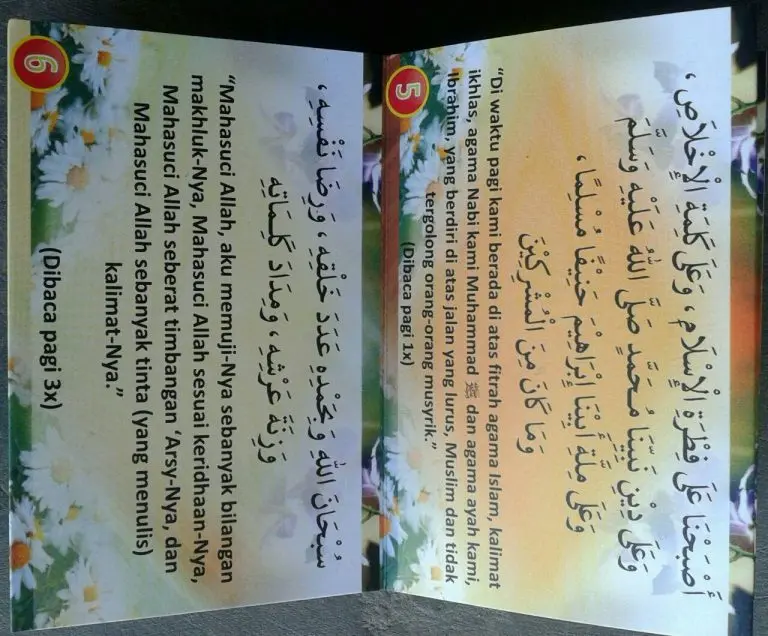 أَصْبَحْنَا عَلَى فِطْرَةِ الْإِسْلَامِ، وَعَلَى كَلِمَةِ الْإِخْلَاصِ،
وَعَلَى دِيْنِ نَبِيِّنَا مُحَمَّدٍ صَلَّى اللهُ عَلَيْهِ وَسَلَّمَ
وَعَلَى مِلَّةِ أَبِيْنَا إِبْرَاهِيْمَ حَنِيْفًا مُسْلِمًا،
وَمَا كَانَ مِنَ الْمُشْرِكِيْنَ
“Di waktu pagi kami berada di atas fitrah agama Islam, kalimat
ikhlas, agama Nabi kami Muhammad ﷺ dan agama ayah kami,
Ibrahim, yang berdiri di atas jalan yang lurus, Muslim dan tidak
tergolong orang-orang musyrik.”
(Dibaca pagi 1x)
5
سُبْحَانَ اللهِ وَبِحَمْدِهِ عَدَدَ خَلْقِهِ، وَرِضَا نَفْسِهِ،
وَزِنَةَ عَرْشِهِ، وَمِدَادَ كَلِمَاتِهِ
“Mahasuci Allah, aku memuji-Nya sebanyak bilangan
makhluk-Nya, Mahasuci Allah sesuai keridhaan-Nya,
Mahasuci Allah seberat timbangan ‘Arsy-Nya, dan
Mahasuci Allah sebanyak tinta (yang menulis)
kalimat-Nya.”
(Dibaca pagi 3x)
6